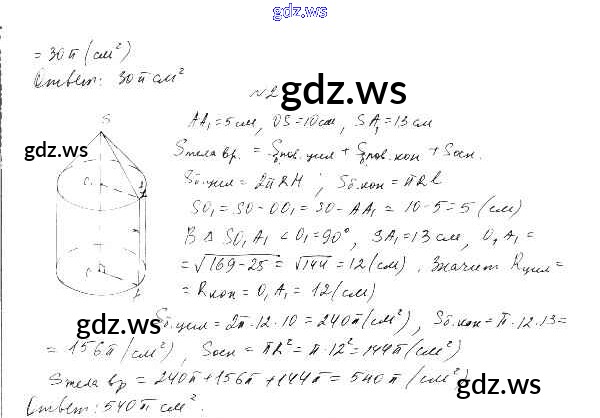 gdz.ws
= 30π (см²)
Ответ: 30π см²
№2
gdz.ws
AA₁ = 5см, OS = 10см, SA₁ = 13 см
gdz.ws
Sтела вр. = Sбпов. цил + Sбпов. кон + Sосн.
Sб.цил = 2πRH ; Sб.кон = πRl
SO₁ = SO - OO₁ = SO - AA₁ = 10 - 5 = 5 (см)
В Δ SO₁A₁ ∠O₁ = 90°, SA₁ = 13 см, O₁A₁ =
= √169-25 = √144 = 12 (см). Значит Rцил =
= Rкон = O₁A₁ = 12 (см)
gdz.ws
Sб.цил = 2π·12·10 = 240π (см²), Sб.кон = π·12·13 =
= 156π (см²), Sосн = πR² = π·12² = 144π (см²)
gdz.ws
Sтела вр = 240π + 156π + 144π = 540π (см²)
Ответ: 540π см².
gdz.ws
gdz.ws